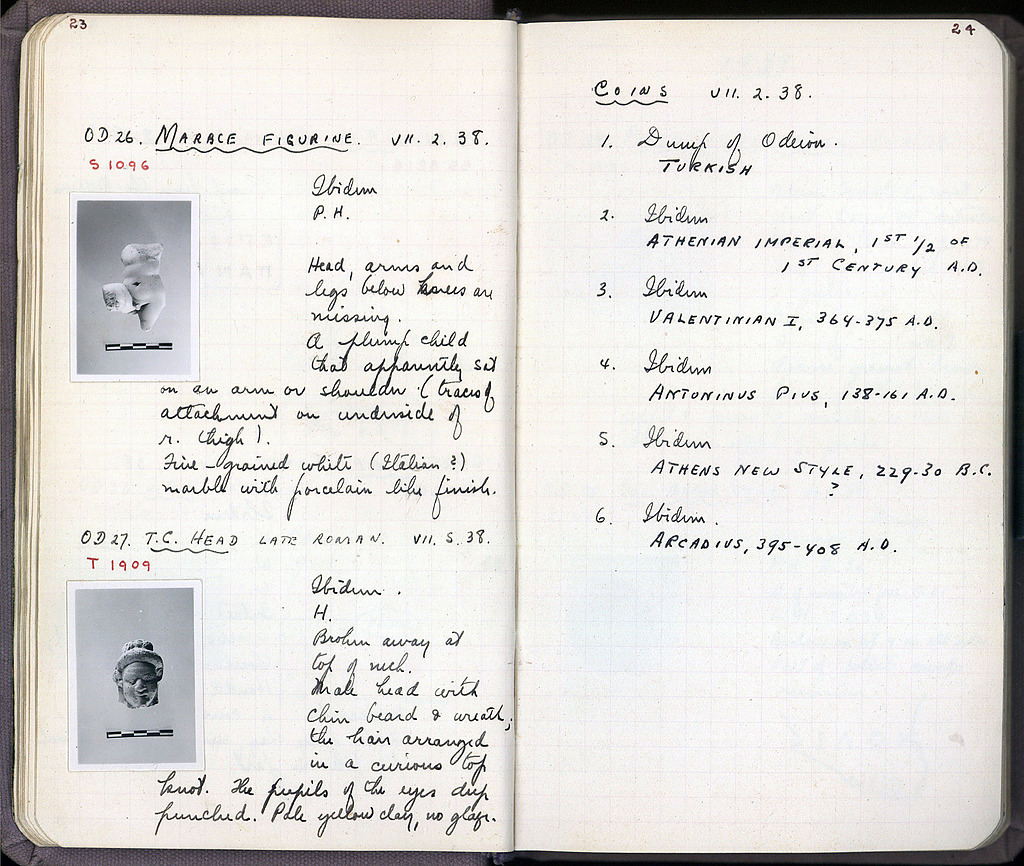 23
OD 26. MARBLE FIGURINE. VII. 2. 38.
S 1096
Ibidem
P. H.
Head, arms and
legs below knees are
missing.
A plump child
that apparently sat
on an arm or shoulder (traces of
attachment on underside of
r. thigh).
Fine-grained white (Italian?)
marble with porcelain like finish.
OD 27. T.C. HEAD LATE ROMAN. VII. 5. 38.
T 1909
Ibidem.
H.
Broken away at
top of neck.
Male head with
chin beard & wreath,
the hair arranged
in a curious top
knot. The pupils of the eyes deep
punched. Pale yellow clay, no glaze.
24
COINS VII. 2. 38.
1. Dump of Odeion.
TURKISH
2. Ibidem
ATHENIAN IMPERIAL, 1ST 1/2 OF
1ST CENTURY A.D.
3. Ibidem
VALENTINIAN I, 364-375 A.D.
4. Ibidem
ANTONINUS PIUS, 138-161 A.D.
5. Ibidem
ATHENS NEW STYLE, 229-30 B.C.
?
6. Ibidem.
ARCADIUS, 395-408 A.D.